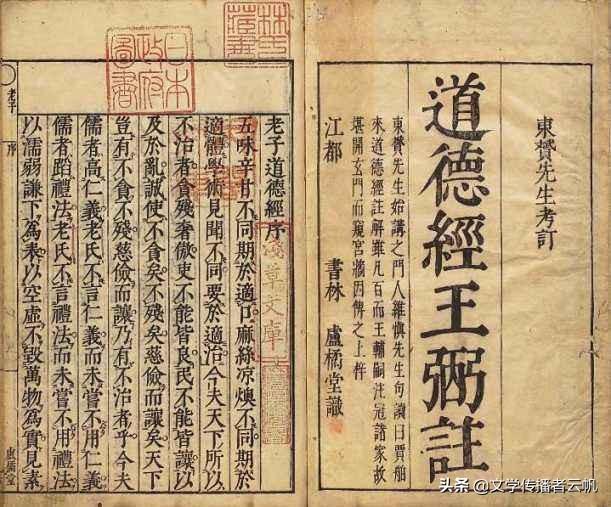 東贇先生考訂
道德經王弼註
東贇先生始講之門人維慎先生句讀曰賈舶
來道德經註解雖凡百而王輔嗣注冠諸家故
堪開玄門而窺宮牆因傳之上梓
江都 書林 盧橘堂識
林氏藏書
日本政府圖書
淺草文庫
老子道德經序
五味辛甘不同期於適口麻絲凉燠不同期於
適體學術見聞不同要於適治今夫天下所以
不治者貪殘奢傲吏不能皆良民不能皆讓以
及於亂誠使不貪矣不殘矣慈儉而讓矣天下
豈有不貪不殘慈儉而讓乃有不治者乎今夫
儒者高仁義老氏不言仁義而未嘗不用仁義
儒者蹈禮法老氏不言禮法而未嘗不用禮法
以濡弱謙下為表以空虛不毀萬物為實見素
老子 序 盧橘堂
头条 @文学传播者云帆